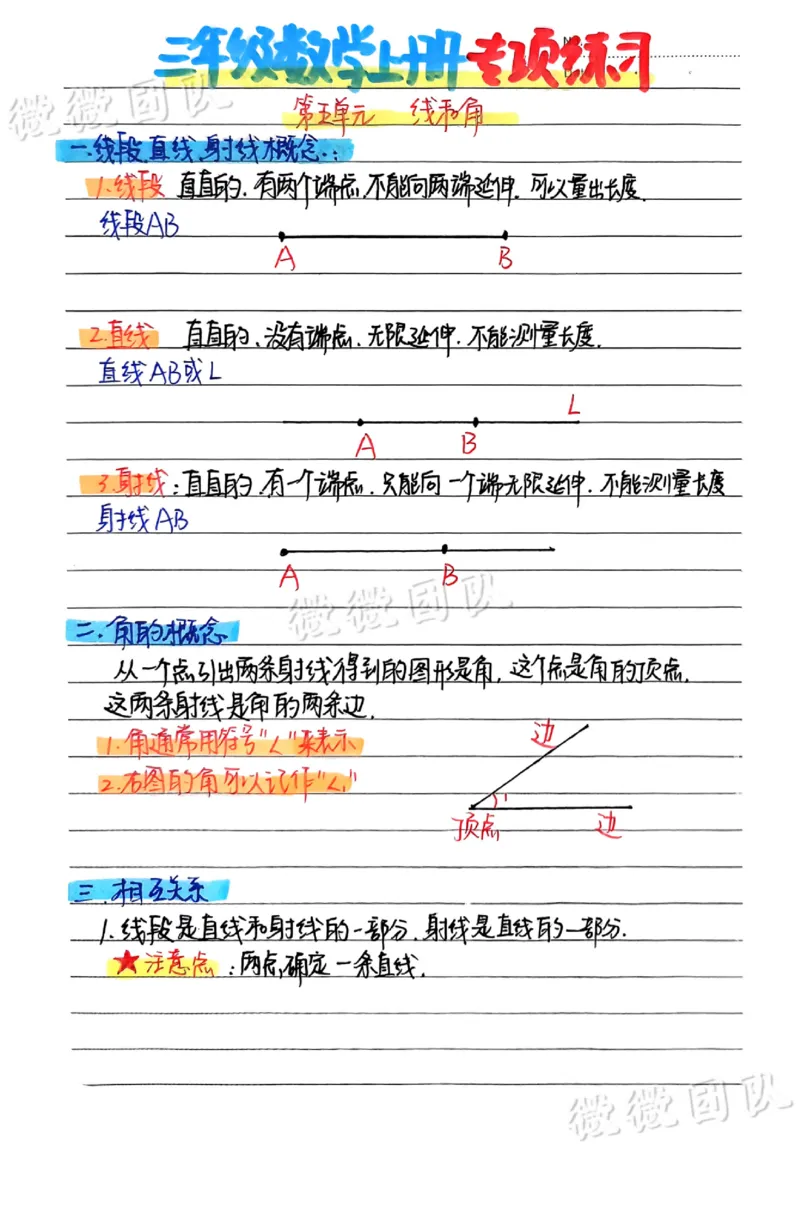 三年级数学上册专项练习
微微团队
第五单元 线和角
一.线段,直线,射线概念.:
1.线段 直直的.有两个端点,不能向两端延伸.可以量出长度.
线段AB
A B
2.直线 直直的、没有端点.无限延伸.不能测量长度.
直线AB或L
L
A B
3.射线:直直的.有一个端点.只能向一个端无限延伸.不能测量长度
射线AB
A B
微微团队
二.角的概念
从一个点引出两条射线得到的图形是角,这个点是角的顶点.
这两条射线是角的两条边.
1.角通常用符号"∠"来表示
边
2.右图的角可以记作"∠1"
1
顶点 边
三.相互关系
1.线段是直线和射线的一部分.射线是直线的一部分.
★注意点:两点确定一条直线.
微微团队